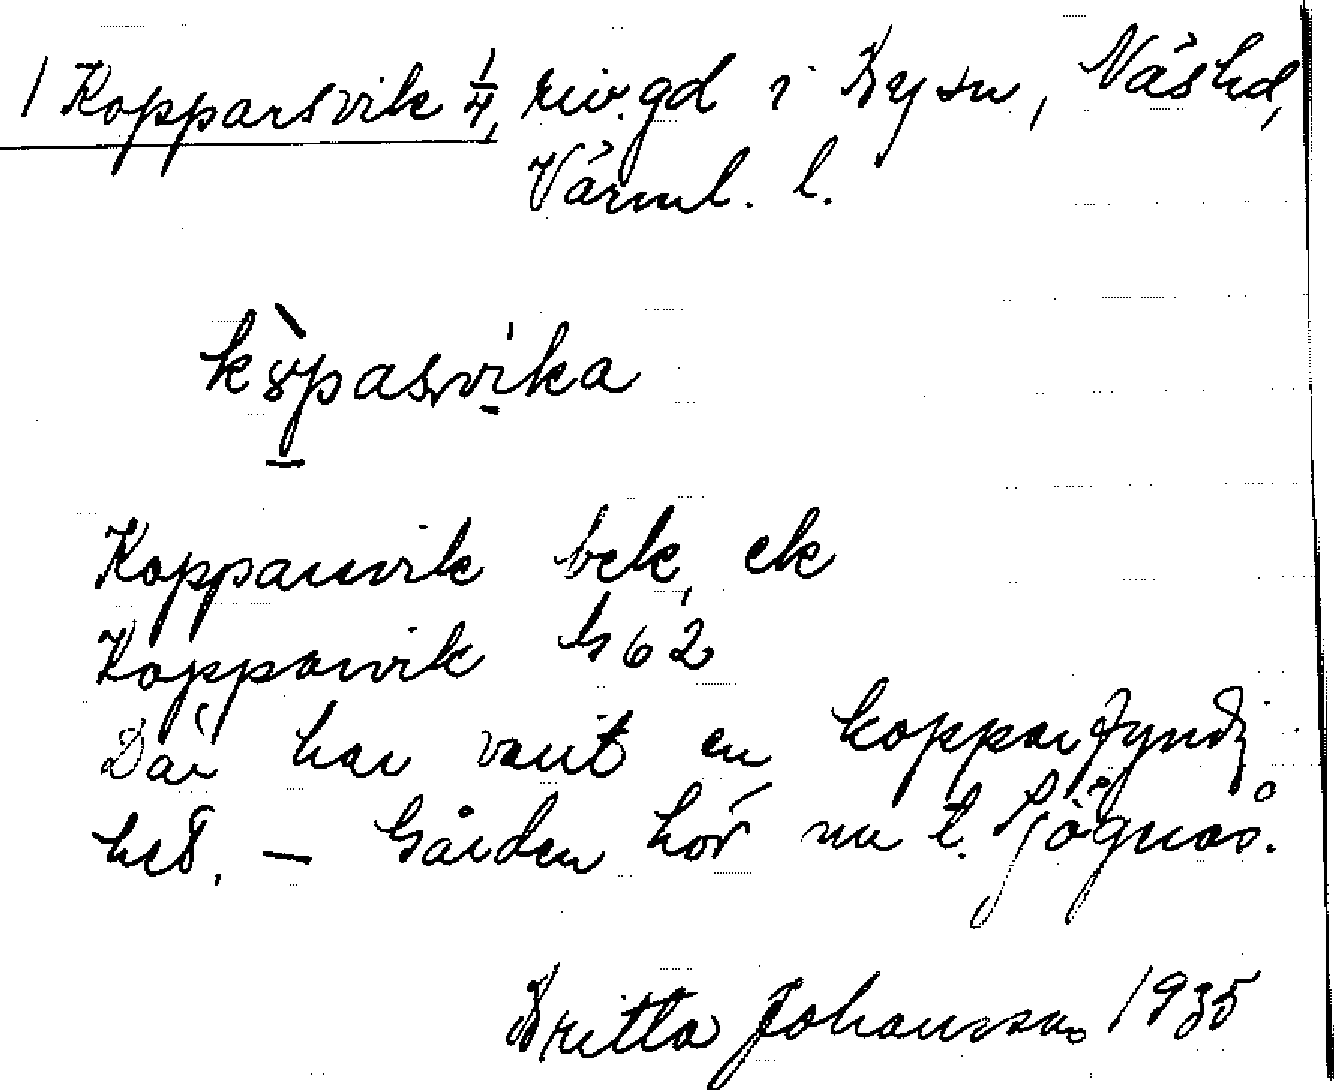 1 Kopparsvik 1/4, riv.gd i By sn, Näshd,
Värml. l.
kø̀pasvika
Kopparsvik bek, ek
Kopparvik G 62
Där har varit en kopparfyndig
het. — Gården hör nu t. Sjögnäs.
Britta Johansson 1935